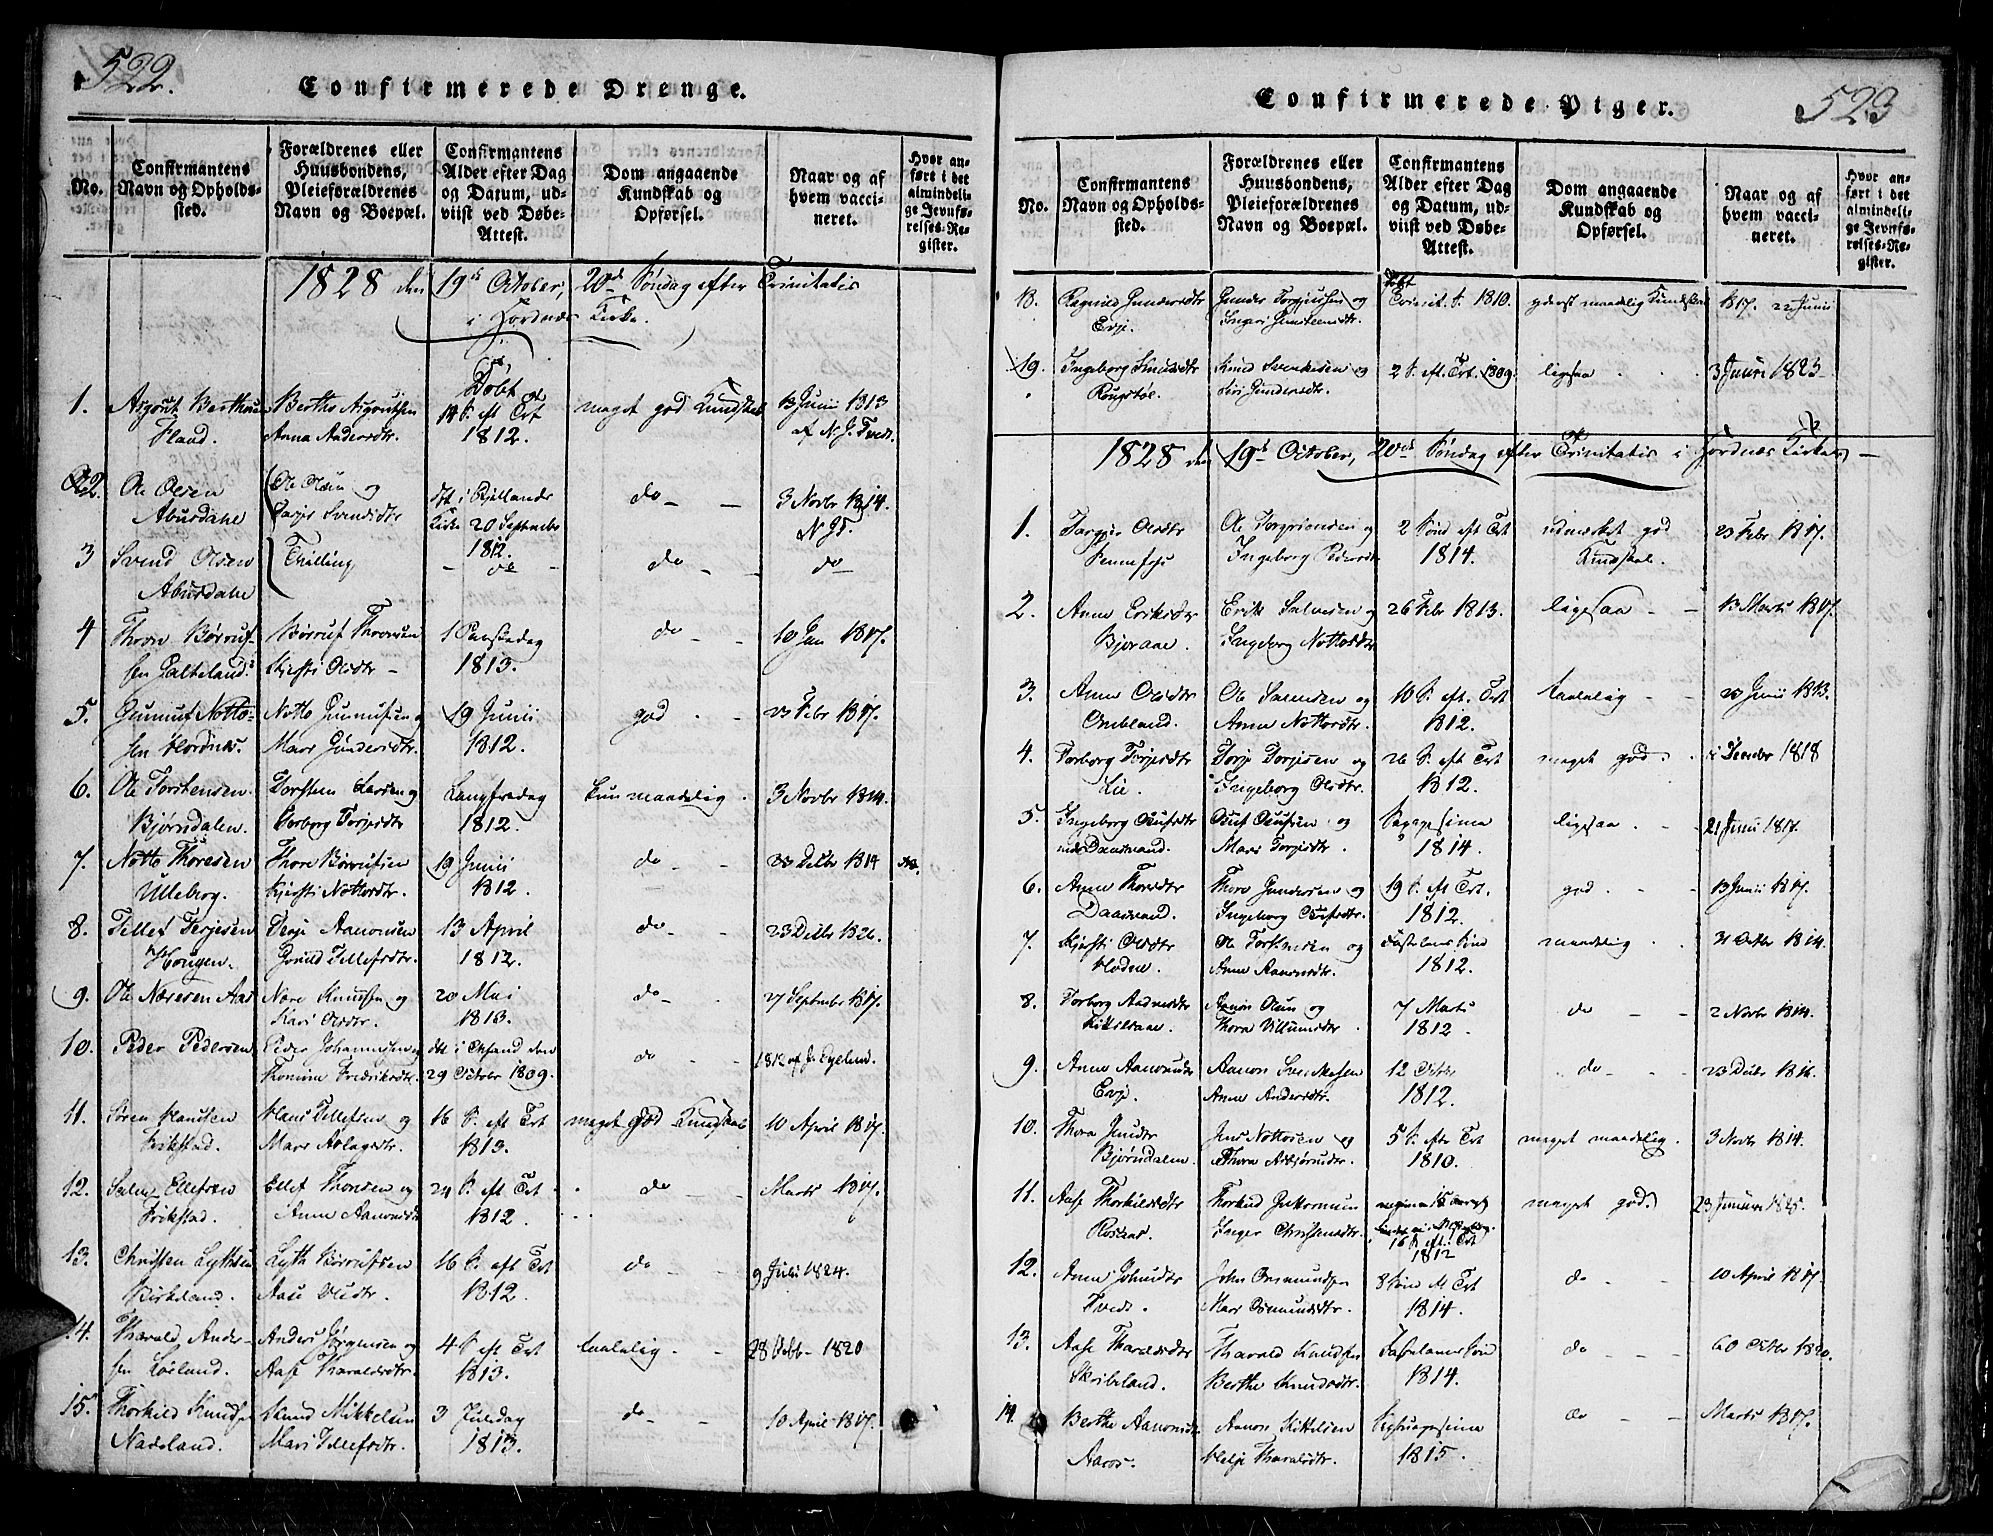 522.
Confirmerede Drenge.
No.
Confirmantens
Navn og Opholds-
sted.
Forældrenes eller
Huusbondens,
Pleieforældrenes
Navn og Boepæl.
Confirmantens
Alder efter Dag
og Datum, ud-
viist ved Døbe-
Attest.
Dom angaaende
Kundskab og
Opførsel.
Naar og af
hvem vacci-
neret.
Hvor an-
ført i det
almindeli-
ge Jevnfø-
relses-Re-
gister.
1828 den 19de October, 20de Søndag efter Trinitatis
i Hordnæs Kirke.
1.
Flaud.
Anna Andersdtr.
Døbt
14 S. eft Trt
1812.
meget god Kundskab
13 Junii 1813
af N. J. Tvedt.
2.
Ole Olsen
Abusdahl
Ole Olsen og
Tarjer Svendsdtr
Kirke 20 September
1812.
do
3 Novbr 1814.
N J T.
3
Svend Olsen
Abusdahl
Tvilling
do
do
do
4
Thore Børruf-
sen Galteland
Børruf Thoresen
Kjersti Olsdtr
1 Paaskedag
1813.
do
10 Jan 1817.
5.
Gunuf Notto-
sen Hordnæs.
Notto Gunufsen og
Mari Gundersdtr.
19 Junii
1812.
god
23 Febr 1817.
6.
Ole Torstensen
Bjørndalen.
Torsten Larsen og
Torborg Torjesdtr
Langfredag
1812.
kun maadelig.
3 Novbr 1814.
7.
Notto Thoresen
Ulleberg.
Thore Børrufsen
Kjersti Nottosdtr.
19 Junii
1812.
do
23 Decbr 1814
8.
Tellef Terjesen
Hougen.
Terje Aanonsen
Gunild Tellefsdtr.
13 April
1812.
do
23 Decbr 1826.
9.
Ole Næresen Aas
Nære Knudsen og
Kari Olsdtr.
20 Mai
1813.
do
27 September 1817.
10.
Peder Pedersen
Peder Johannesen og
Fredriksdtr.
29 October 1809.
do
11.
Søren Hansen
Frikstad.
Hans Tellefsen og
Mari Aslagsdtr.
16 S. eft Trt
1813.
meget god Kundskab
10 April 1817.
12.
Ellefsen
Frikstad.
Ellef Thorsen og
Anne Aanonsdtr
24 S. eft Trt
1812.
do
Marts 1817.
13.
Christen Lythsen
Birkeland.
Lyth Børrufsen
Aase Olsdtr.
16 S. eft Trt
1812.
do
9 Juli 1824.
14.
Tharald Ander-
sen Løiland.
Anders Jørgensen og
Aase Tharaldsdtr.
4 S. eft Trt
1813.
taalelig
28 1820
15.
Thorkild Knudsen
Nadeland.
Knud Mikkelsen
Mari Tellefsdtr.
3 Juledag
1813.
do
10 April 1817.
523
Confirmerede Piger.
No.
Confirmantens
Navn og Opholds-
sted.
Forældrenes eller
Huusbondens,
Pleieforældrenes
Navn og Boepæl.
Confirmantens
Alder efter Dag
og Datum, ud-
viist ved Døbe-
Attest.
Dom angaaende
Kundskab og
Opførsel.
Naar og af
hvem vacci-
neret.
Hvor an-
ført i det
almindeli-
ge Jevnfø-
relses-Re-
gister.
18.
Ragnild Gundersdtr
Evje.
Gunder Torjussen og
Ingeri Gunsteensdtr.
Trinit. S. 1810.
yderst maadelig Kundskab
1817. 22 Junii
19.
Ingeborg Knudsdtr
Rougstøl.
Knud Svenkesen og
Siri Gundersdtr.
2 S. eft. Trt. 1809.
ligesaa
3 1823
1828 den 19de October, 20de Søndag efter Trinitatis i Hordnæs Kirke
1.
Targjer Olsdtr
Fennefos
Ole
Ingeborg Pedersdtr
2 Sønd eft Trt
1814.
udmærket god
Kundskab.
23 Febr 1817.
2.
Anne Eriksdtr
Bjoraae.
Erik Salvesen og
Ingeborg Nottosdtr
26 Febr 1813.
ligesaa
13 Marts 1817.
3.
Anne Olsdtr
Omland.
Ole
Anne Nottosdtr.
10 S. eft. Trt
1812.
taalelig
23 Junii 1813.
4.
Torborg Torjesdtr
Lie.
Torje Torjesen og
Ingeborg Olsdtr.
26 S. eft Trt
1812.
meget god.
1818
5.
Ingeborg Olufsdtr
Daasvand.
Oluf Olufsen og
Mari Torjesdtr.
1814.
ligesaa
21 Junii 1817.
6.
Anne Thoresdtr
Daasvand.
Thore Gundersen og
Ingeborg Olufsdtr.
19 S. eft Trt.
1812.
god
13 Junii 1817.
7.
Kjersti Olsdtr
Hodne.
Ole Torstensen og
Anne Aanonsdtr.
Fastelavns Sønd
1812.
maadelig
31 Octbr 1814.
8.
Torborg Aanonsdtr
Aanon Olsen og
Thore Villumsdtr
7 Marts
1812.
do
2 Novbr 1814.
9.
Anne Aanonsdtr
Evje.
Aanon Svenkesen
Anne Andersdtr.
12 Octbr
1812.
do
23 Decbr 1816.
10.
Thore Jensdtr
Bjørndalen.
Jens Nottosen og
Thore Asbjørnsdtr.
5 S. efter Trt
1810.
meget maadelig.
3 Novbr 1814.
11.
Aase Thorkildsdtr
Rosaas.
Thorkild Guttormsen
Inger Christensdtr.
16 S. eft. Trt
1812
meget god.
23 Januari 1825.
12.
Anne Johnsdtr
Tvedt.
John Omundsen
Mari Omundsdtr.
8 Sønd eft Trt
1814.
do
10 April 1817.
13.
Aase Tharaldsdtr
Skribeland.
Tharald Knudsen
Berthe Knudsdtr.
Fastelavns Sønd
1814.
do
Octbr 1820.
14.
Berthe Aanonsdtr
Aaros.
Aanon Kittelsen
Helje Tharaldsdtr.
1815.
do
Marts 1817.